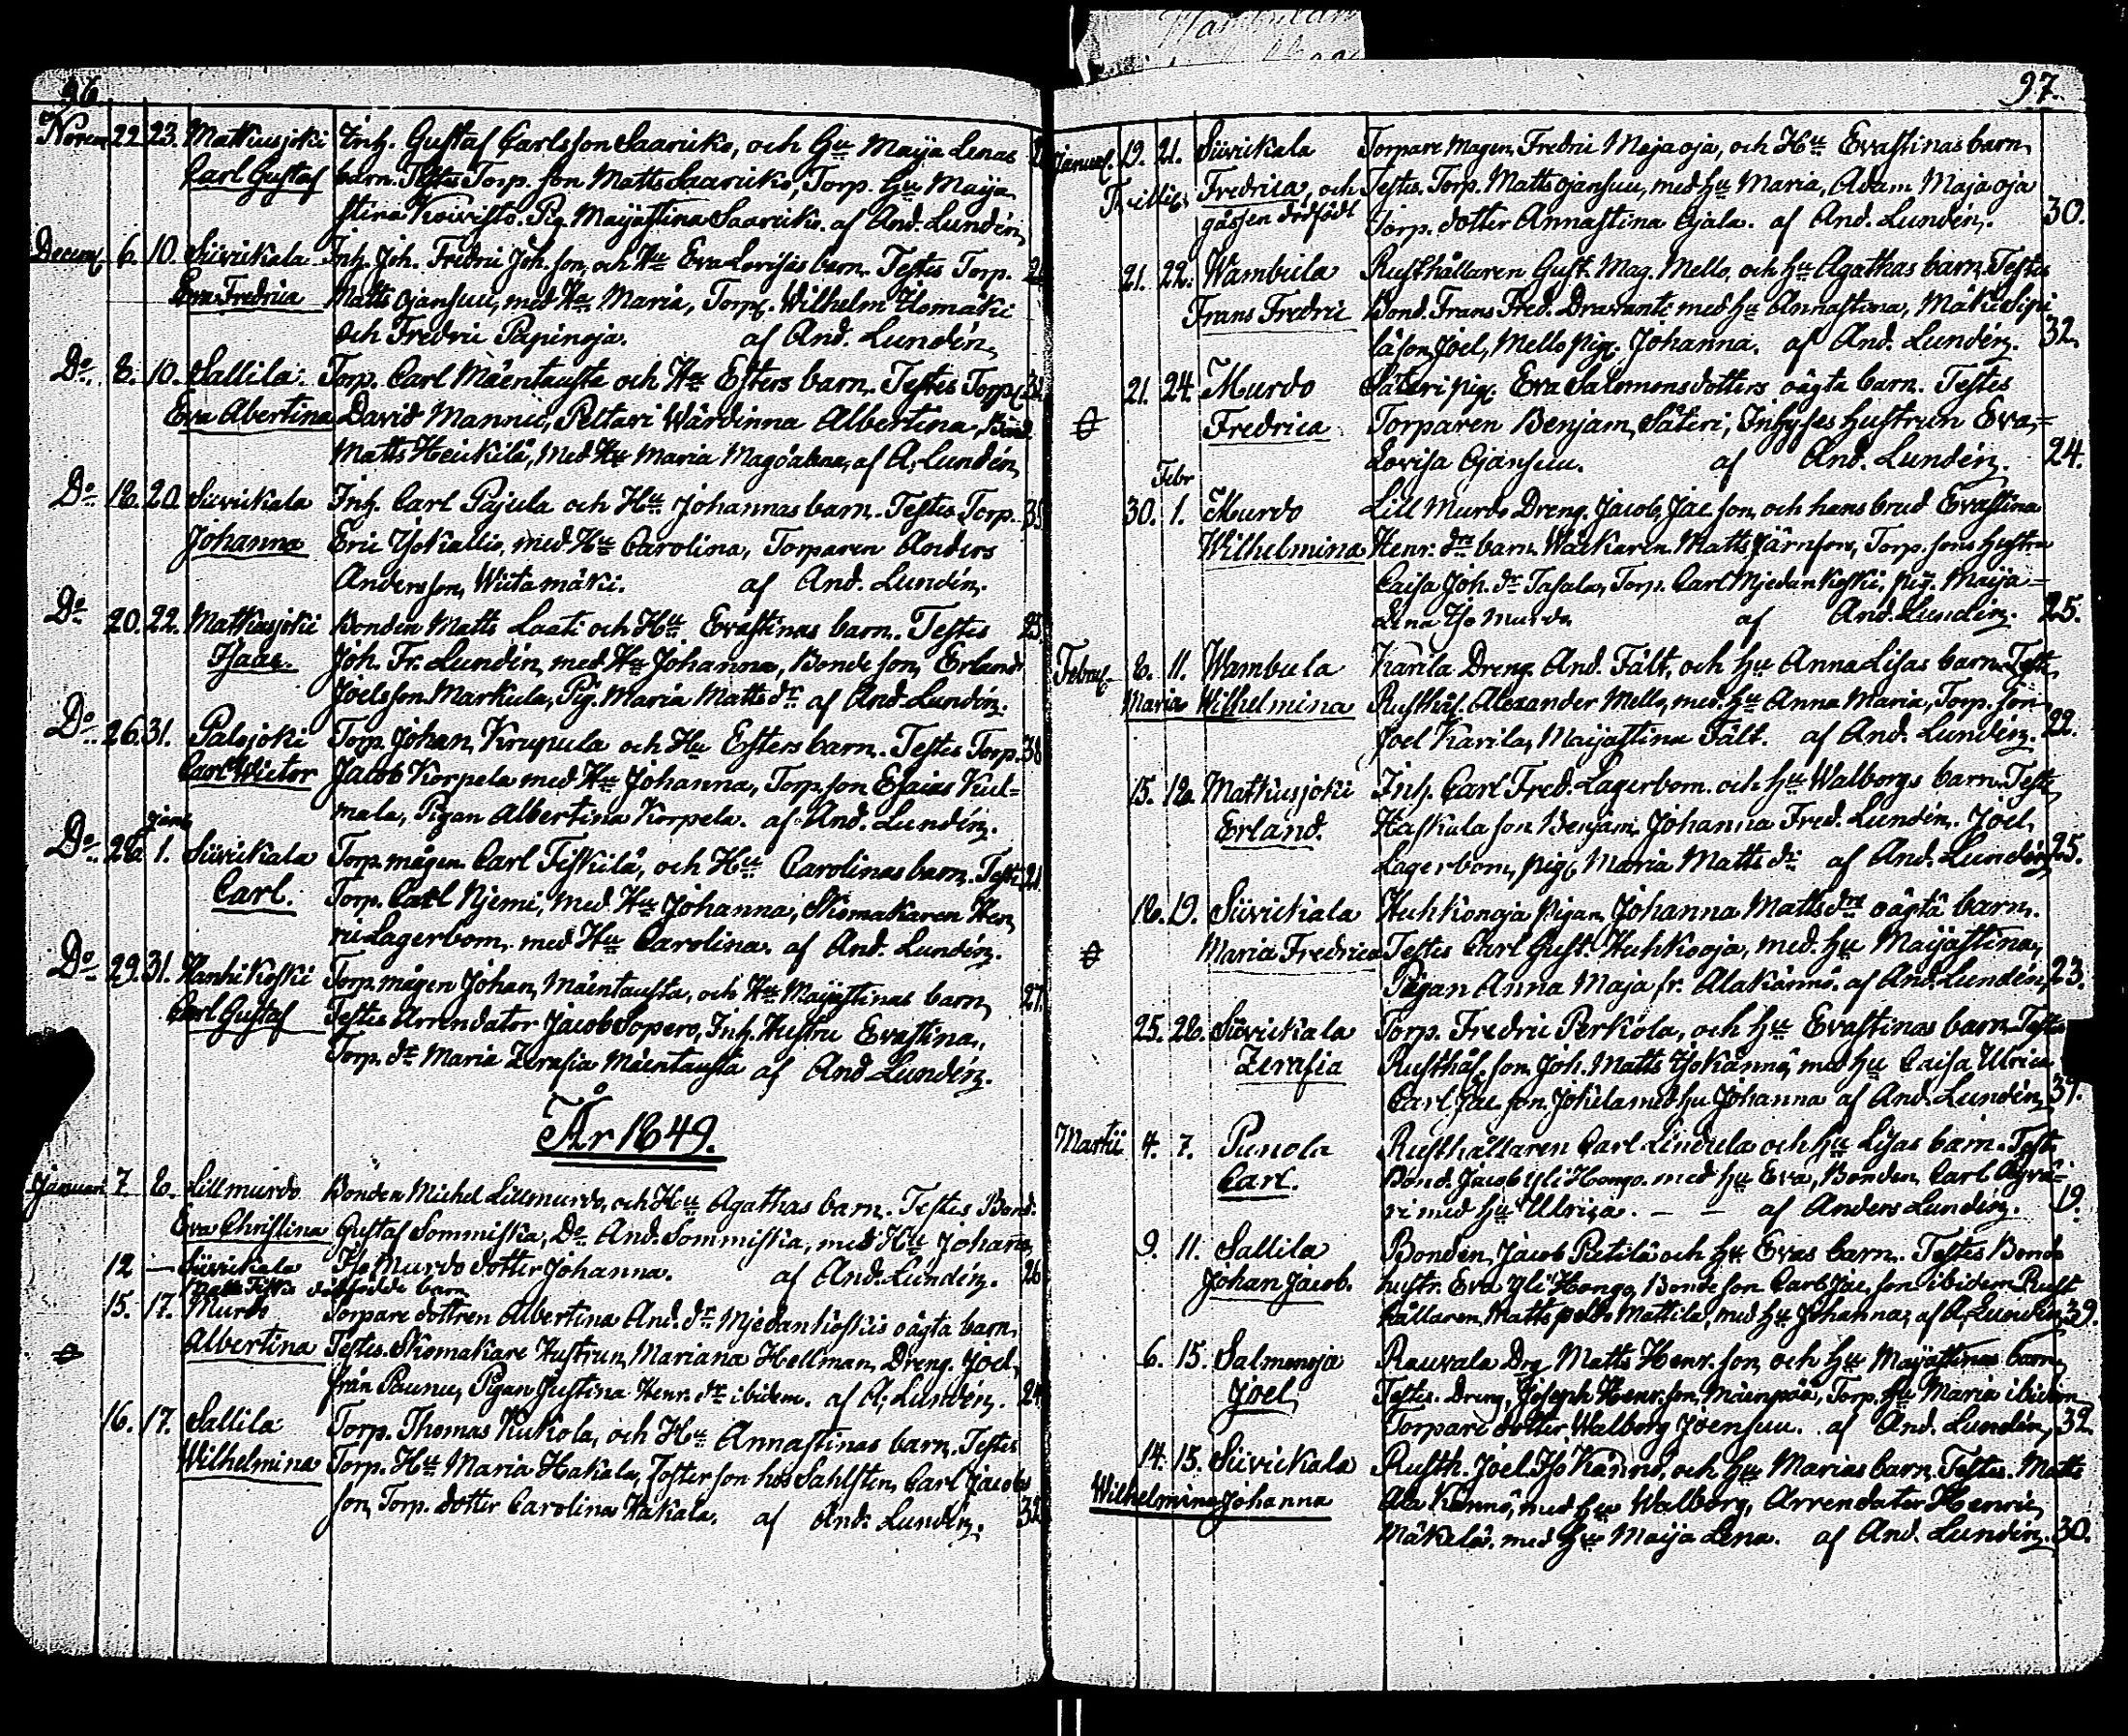 96
Novem 22. 23. Matkusjoki Inh. Gustaf Carlsson Saariko, och Hu Maija Lenas
Carl Gustaf barn. Testes Torp. son Matts Saariko, Torp. Hu Maija
Stina Koivisto. Pig. Maijastina Saariko. af And. Lundén,
Decem 6. 10. Suvikala Inh. Joh. Fredric Joh. son, och Hu Eva Lovisas barn. Testes Torp.
Eva Fredrica Matts Ojansuu, med Hu Maria, Torp. Wilhelm Ilomäki
och Fredric Papinoja. af And. Lundén,
Do 8. 10. Sallila. Torp. Carl Mäentausta och Hu Esters barn. Testes Torp.
Eva Abertina David Mannic, Peltari Wärdinna Albertina, Bond.
Matts Heikilä, med Hu Maria Magdalena, af A, Lundén,
Do 18. 20. Suvikala Inh. Carl Pajula och Hu Johannas barn. Testes Torp.
Johanna Eric Isokallio, med Hu Carolina, Torparen Anders
Andersson, Wiitamäki. af And. Lundén.
Do 20. 22. Matkusjoki Bonden Matts Laati och Hu Evastinas barn. Testes 25
Isaac. Joh. Fr. Lundén, med Hu Johanna, Bonde son, Erland
Joelsson Markula, Pig. Maria Matts dr. af And. Lundén.
Do 26. 31. Palojoki Torp. Johan Krupula och Hu Esters barn. Testes Torp. 38
Carl Wictor Jacob Korpela med Hu Johanna, Torp. son Esaias Kul=
mala, Pigan Albertina Korpela. af And. Lundén.
Do 28. Janu 1. Suvikala Torp. mågen Carl Fiskilä, och Hu Carolinas barn. Test. 21.
Carl. Torp. Carl Njemi, med Hu Johanna, Skomakaren Hen,
ric Lagerbom, med Hu Carolina. af And. Lundén.
Do 29. 31. Hanhikoski Torp. mågen Johan, Mäentausta, och Hu Maijastinas barn, 27.
Carl Gustaf Testes Arrendator Jacob Sopero, Inh. Hustru Evastina,
Torp. dr. Maria Serafia Mäentausta af And Lundén.
År 1849.
Januari 7 8. Lillmurdo Bonden Michel Lillmurdo, och Hu Agathas barn. Testes Bond.
Eva Christina Gustaf Sommiska, Do And. Sommiska, med Hu Johana,
12 — Suvikala Iso Murdo dotter Johanna. af And. Lundén. 26
dödfödde barn
15. 17. Murdo Torpare dottren Albertina And. dr Mjedankoskis oägta barn.
Albertina Testes. Skomakare Hustrun, Mariana Hellman, Dreng. Joel,
från Paunu, Pigan Justina Henr. dr ibidem. af A, Lundén. 24
16. 17. Sallila Torp. Thomas Kukola, och Hu Annastinas barn. Testes
Wilhelmina Torp. Hu Maria Hakala, foster son hos Sahlsten, Carl Jacobs
son, Torp. dotter Carolina Hakala, af And. Lundén. 32
97.
Januar. 19. 21. Suvikala Torpare Magen, Fredric Majaoja, och Hu Evastinas barn,
Fredrica, och Testes. Torp. Matts Ojansuu, med Hu Maria, Adam Majaoja
gåssen dödfödt Torp. dotter Annastina Ojala. af And. Lundén. 30.
21. 22. Wambula Rusthållaren Gust. Mag. Mello, och Hu Agathas barn. Testes
Frans Fredric Bond. Frans Fred. Dravante med Hu Annastina, Mäki Sipi
lä son Joel, Mello pig. Johanna. af And. Lundén. 32.
21. 24. Murdo Säteri pig. Eva Salomonsdotters oägta barn. Testes
Fredrica Torparen Benjam, Säteri, Inhyses hustrun Eva=
Lovisa Ojansuu. af And. Lundén. 24.
30. Febr 1. Murdo Lill Murdo Dreng. Jacob, Jac. son, och hans brud Evastina
Wilhelmina Henr. drs barn. Matts Järnfors, Torp. sons hustru
Caisa Joh. dr Tasala, Torp. Carl Mjedankoski, pig. Maija=
Lena Iso Murdo af And. Lundén. 25.
Febru 8. 11. Wambula Karila Dreng. And. Fält, och Hu Anna Lisas barn. Test,
Maria Wilhelmina Rusthål. Alexander Mello, med Hu Anna Maria, Torp. son
Joel Karila, Maijastina Fält. af And. Lundén. 22.
15. 18. Matkusjoki Inh. Carl Fred. Lagerbom. och Hu Walborgs barn. Test,
Erland. Haskula son Benjam, Johanna Fred. Lundén. Joel,
Lagerbom, pig. Maria Matts dr. af And. Lundén 25.
18. 19. Suvikala Huhkionoja Pigan, Johanna Matts drs oägta barn.
Maria Fredrica Testes Carl Gust. Huhkooja, med. Hu Maijastina,
Pigan Anna Maja fr. Alakännö. af And. Lundén, 23.
25. 28. Suvikala Torp. Fredric Perkiola, och Hu Evastinas barn. Testes
Zerafia Rusthål. son, Joh. Matts Isokännö, med Hu Caisa Ulrica
Carl Jac. son, Jokela med hu Johanna af And. Lundén 37.
Martii 4. 7. Punola Rusthållaren Carl Lindula och Hu Lisas barn. Test,
Carl. Bond. Jacob Yli Hongo. med Hu Eva, Bonden, Carl Ayrä=
ri med Hu Ulrica. — — af Anders Lundén. 19.
9. 11. Sallila Bonden, Jacob Pietilä och Hu Evas barn. Testes Bonde
Johan Jacob. hustr. Eva Yli Hongo, Bonde son Carl Jac. son ibidem Rust
hållaren, Matts Mattila, med Hu Johanna, af A, Lundén 39.
6. 15. Salmenoja Rauvala Drg Matts Henr. son, och Hu Maijastinas barn,
Joel Testes. Dreng, Joseph Henr. son, Mäenpää, Torp. Hu Maria ibidem
Torpare dotter, Walborg Joensuu. af And. Lundén, 32.
14. 15. Suvikala Rusth. Joel. Iso Kännö, och Hu Marias barn. Testes. Matts
Wilhelmina Johanna Ala Kännö, med Hu Walborg, Arrendator Henric,
Mäkelä. med Hu Maija Lena. af And. Lundén. 30.